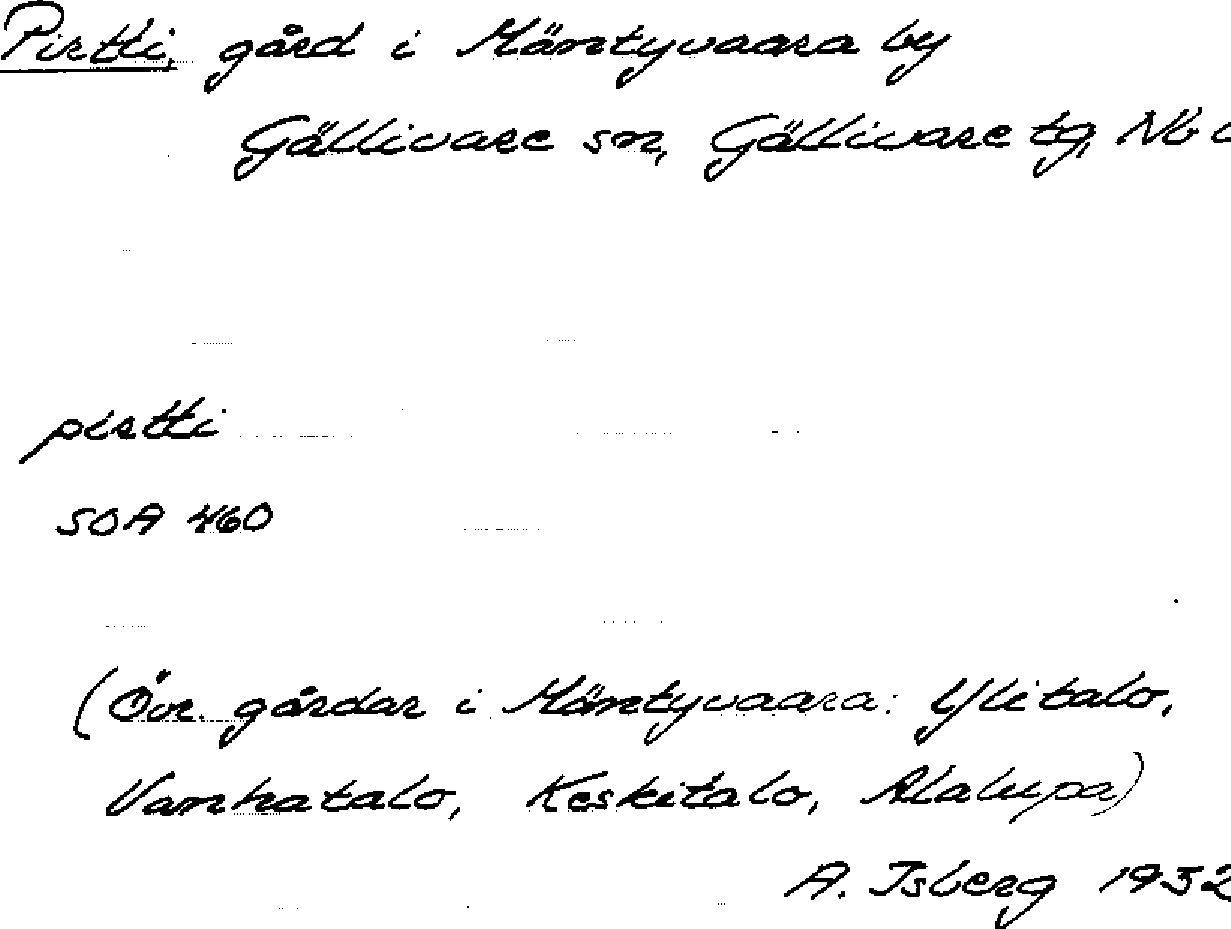 Pirtti, gård i Mäntyvaara by
Gällivare sn, Gällivare tg, Nb
pirtti
SOA 460
(Övr. gårdar i Mäntyvaara: Ylitalo,
Vanhatalo, Keskitalo, Alalupa)
A. Isberg 1932